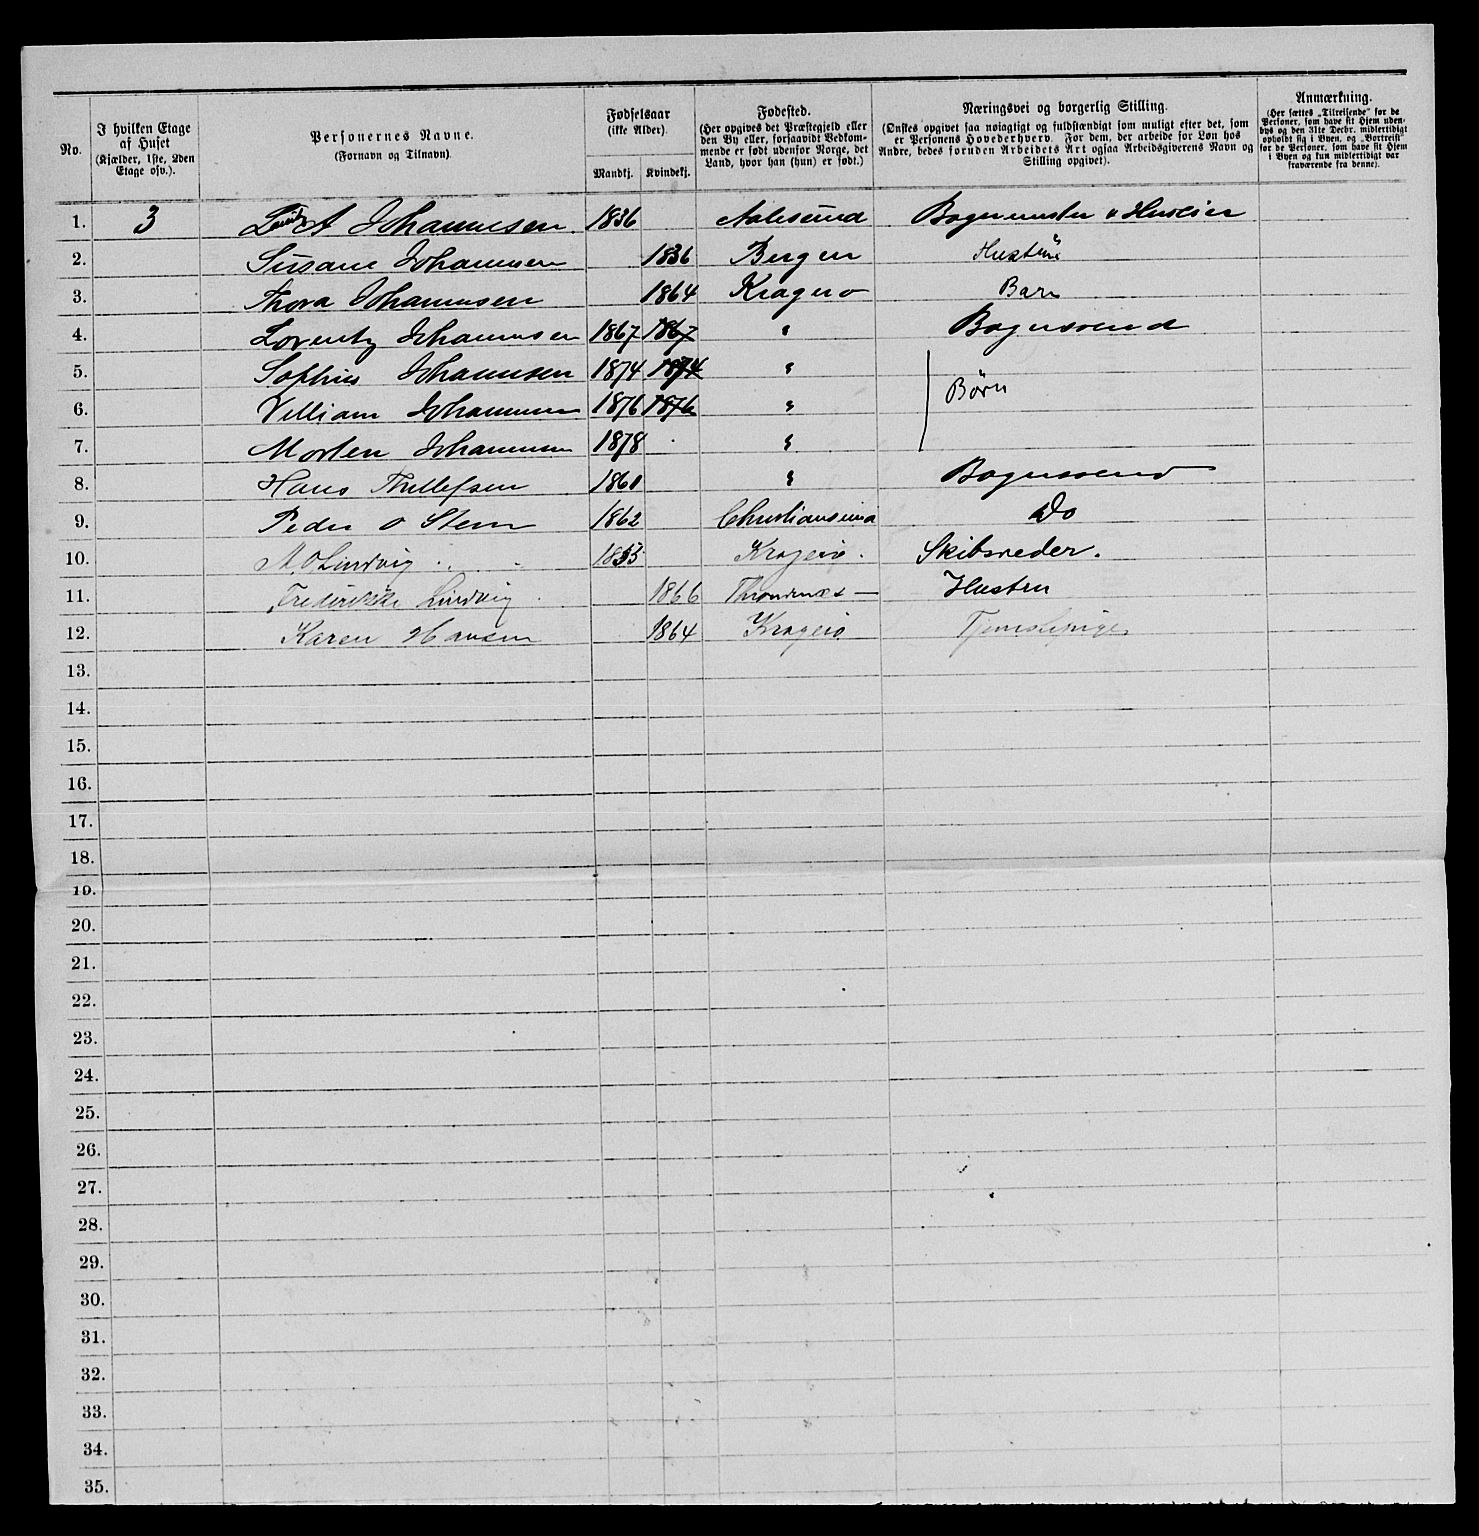 No.
I hvilken Etage af Huset (Kjælder, 1ste, 2den Etage osv.).
Personernes Navne. (Fornavn og Tilnavn)
Fødselsaar (ikke Alder). Mandkj. Kvindekj.
Fødested. (Her opgives det Præstegjeld eller den By eller, forsaavidt Vedkommende er født udenfor Norge, det Land, hvor han (hun) er født.)
Næringsvei og borgerlig Stilling. (Ønskes opgivet saa nøiagtigt og fuldstændigt som muligt efter det, som er Personens Hovederhverv. For dem, der arbeide for Løn hos Andre, bedes foruden Arbeidets Art ogsaa Arbeidsgiverens Navn og Stilling opgivet).
Anmærkning. (Her sættes „Tilreisende“ for de Personer, som have sit Hjem udenbys og den 31te Decbr. midlertidigt opholdt sig i Byen, og „Bortreist“ for de Personer, som have sit Hjem i Byen og kun midlertidigt var fraværende fra denne).
1. 3 A Johannesen 1836 Aalesund Bagermester o Huseier
2. Susane Johannesen 1836 Bergen Hustru
3. Thora Johannesen 1864 Kragerø Barn
4. Lorentz Johannesen 1867 1867 " Bagersvend
5. Sophus Johannesen 1874 1874 "
6. Villiam Johannesen 1876 1876 " Børn
7. Morten Johannesen 1878 "
8. Hans Thellefsen 1860 " Bagersvend
9. Peder O Steen 1862 Christiansund Do
10. M. O Lindvig 1855 Kragerø. Skibsreder.
11. Frederikke Lindvig 1866 Hustru
12. Karen Hansen 1864 Kragerø Tjenestepige
13.
14.
15.
16.
17.
18.
19.
20.
21.
22.
23.
24.
25.
26.
27.
28.
29.
30.
31.
32.
33.
34.
35.